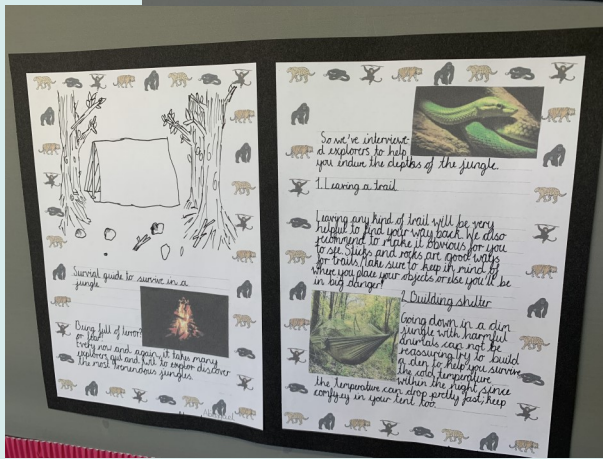 Survial guide to survive in a
jungle
Being full of terror?
or fear?
Every now and again, it takes many
explorers guid and will to explor discover
the most tremendous jungles.
So we've interviewe-
d explorers to help
you endure the depths of the jungle.
1. Leaving a trail
Leaving any kind of trail will be very
helpful to find your way back. We also
recommend to make it obvious for you
to see. Sticks and rocks are good ways
for trails. Make sure to keep in mind of
where you place your objects or else you'll be
in big danger!
2. Building shelter
Going down in a dim
jungle with harmful
animals can not be
reassuring try to build
a den to help you survive
the cold temperature
within the night since
the temperature can drop pretty fast, keep
comfy in your tent too.